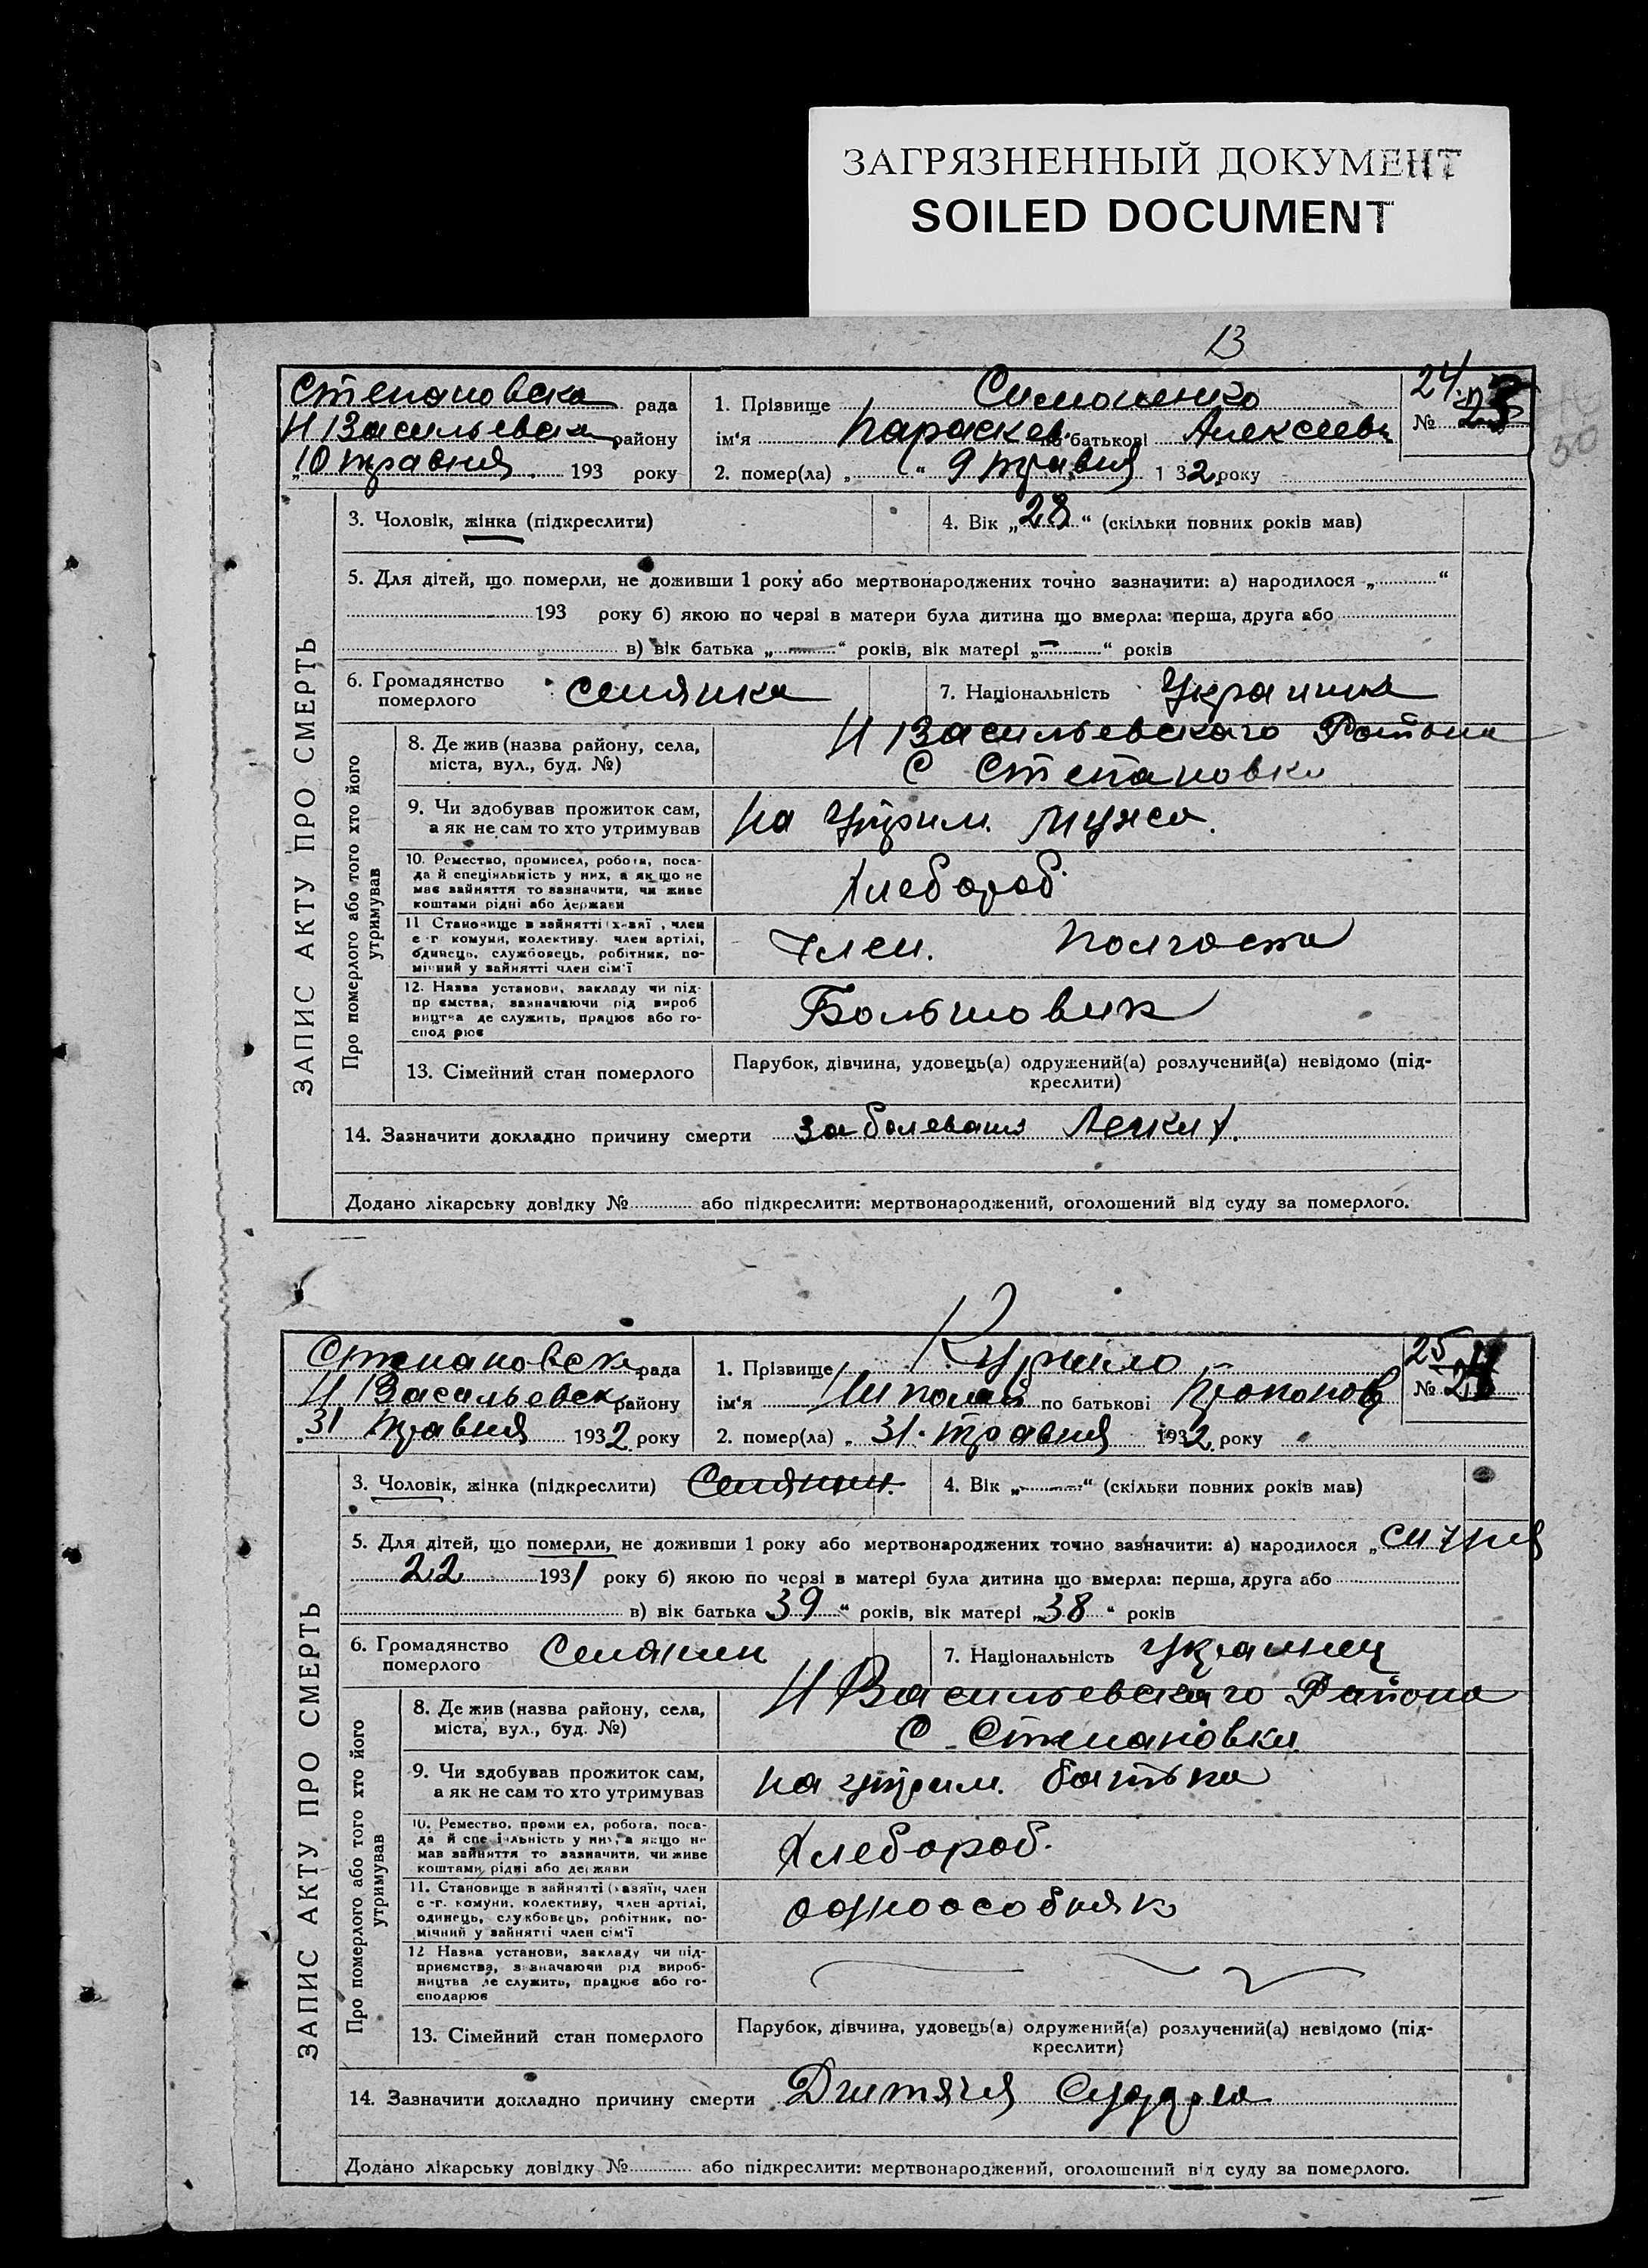 ЗАГРЯЗНЕННЫЙ ДОКУМЕНТ
SOILED DOCUMENT
13
Степановска рада
Н Васильевска району
„10 травня 193 року
1. Прізвище Симоненко
ім'я Параскев по батькові Алексеевн
2. помер(ла) „ “ 9 травня 1 32 року
24
№ 23
50
ЗАПИС АКТУ ПРО СМЕРТЬ
3. Чоловік, жінка (підкреслити)
4. Вік „28“ (скільки повних років мав)
5. Для дітей, що померли, не доживши 1 року або мертвонароджених точно зазначити: а) народилося „ “
193 року б) якою по черзі в матери була дитина що вмерла: перша, друга або
в) вік батька „—“ років, вік матері „—“ років
6. Громадянство померлого селянка
7. Національність Украинка
Про померлого або того хто його утримував
8. Де жив (назва району, села, міста, вул., буд. №)
Н Васильевского Района
С Степановки
9. Чи здобував прожиток сам, а як не сам то хто утримував
на утрим. мужа.
10. Ремество, промисел, робота, поса-
да й спеціяльність у них, а як що не
має зайняття то зазначити, чи живе
коштами рідні або держави
Хлебороб
11 Становище в зайнятті х-зяї , член
с-г комуни, колективу. член артілі,
одинець, службовець, робітник, по-
мічний у зайнятті член сім'ї
Член. колгоспа
12. Назва установи, закладу чи під-
пр ємства, зазначаючи рід вироб
ництва де служить, працює або го-
спод рює
Большовик
13. Сімейний стан померлого
Парубок, дівчина, удовець(а) одружений(а) розлучений(а) невідомо (під-
креслити)
14. Зазначити докладно причину смерти заболеваня Легких.
Додано лікарську довідку № або підкреслити: мертвонароджений, оголошений від суду за померлого.
Степановска рада
Н Васильевск району
„31 травня 1932 року
1. Прізвище Курило
ім'я Николай по батькові
2. помер(ла) „ 31. травня 1932 року
25
№ 24
ЗАПИС АКТУ ПРО СМЕРТЬ
3. Чоловік, жінка (підкреслити) Селянин.
4. Вік „—“ (скільки повних років мав)
5. Для дітей, що померли, не доживши 1 року або мертвонароджених точно зазначити: а) народилося „ сичня
22 1931 року б) якою по черзі в матері була дитина що вмерла: перша, друга або
в) вік батька 39“ років, вік матері „38“ років
6. Громадянство померлого Селянин
7. Національність украинец
Про померлого або того хто його утримував
8. Де жив (назва району, села, міста, вул., буд. №)
Н Васильевского Района
С Степановки
9. Чи здобував прожиток сам, а як не сам то хто утримував
на утрим. батька
10. Ремество, проми ел, робота, поса-
да й спе іяльність у них, а якщо не
мав зайняття то зазначити, чи живе
коштами рідні або держави
Хлебороб.
11. Становище в зайнятті (хазяїн, член
с-г. комуни, колективу, член артілі,
одинець, службовець, робітник, по-
мічний у зайнятті член сім'ї
одноособняк
12 Назва установи, закладу чи під-
приємства, зазначаючи рід вироб-
ництва де служить, працює або го-
сподарює
13. Сімейний стан померлого
Парубок, дівчина, удовець(а) одружений(а) розлучений(а) невідомо (під-
креслити)
14. Зазначити докладно причину смерти Дитяча
Додано лікарську довідку № або підкреслити: мертвонароджений, оголошений від суду за померлого.